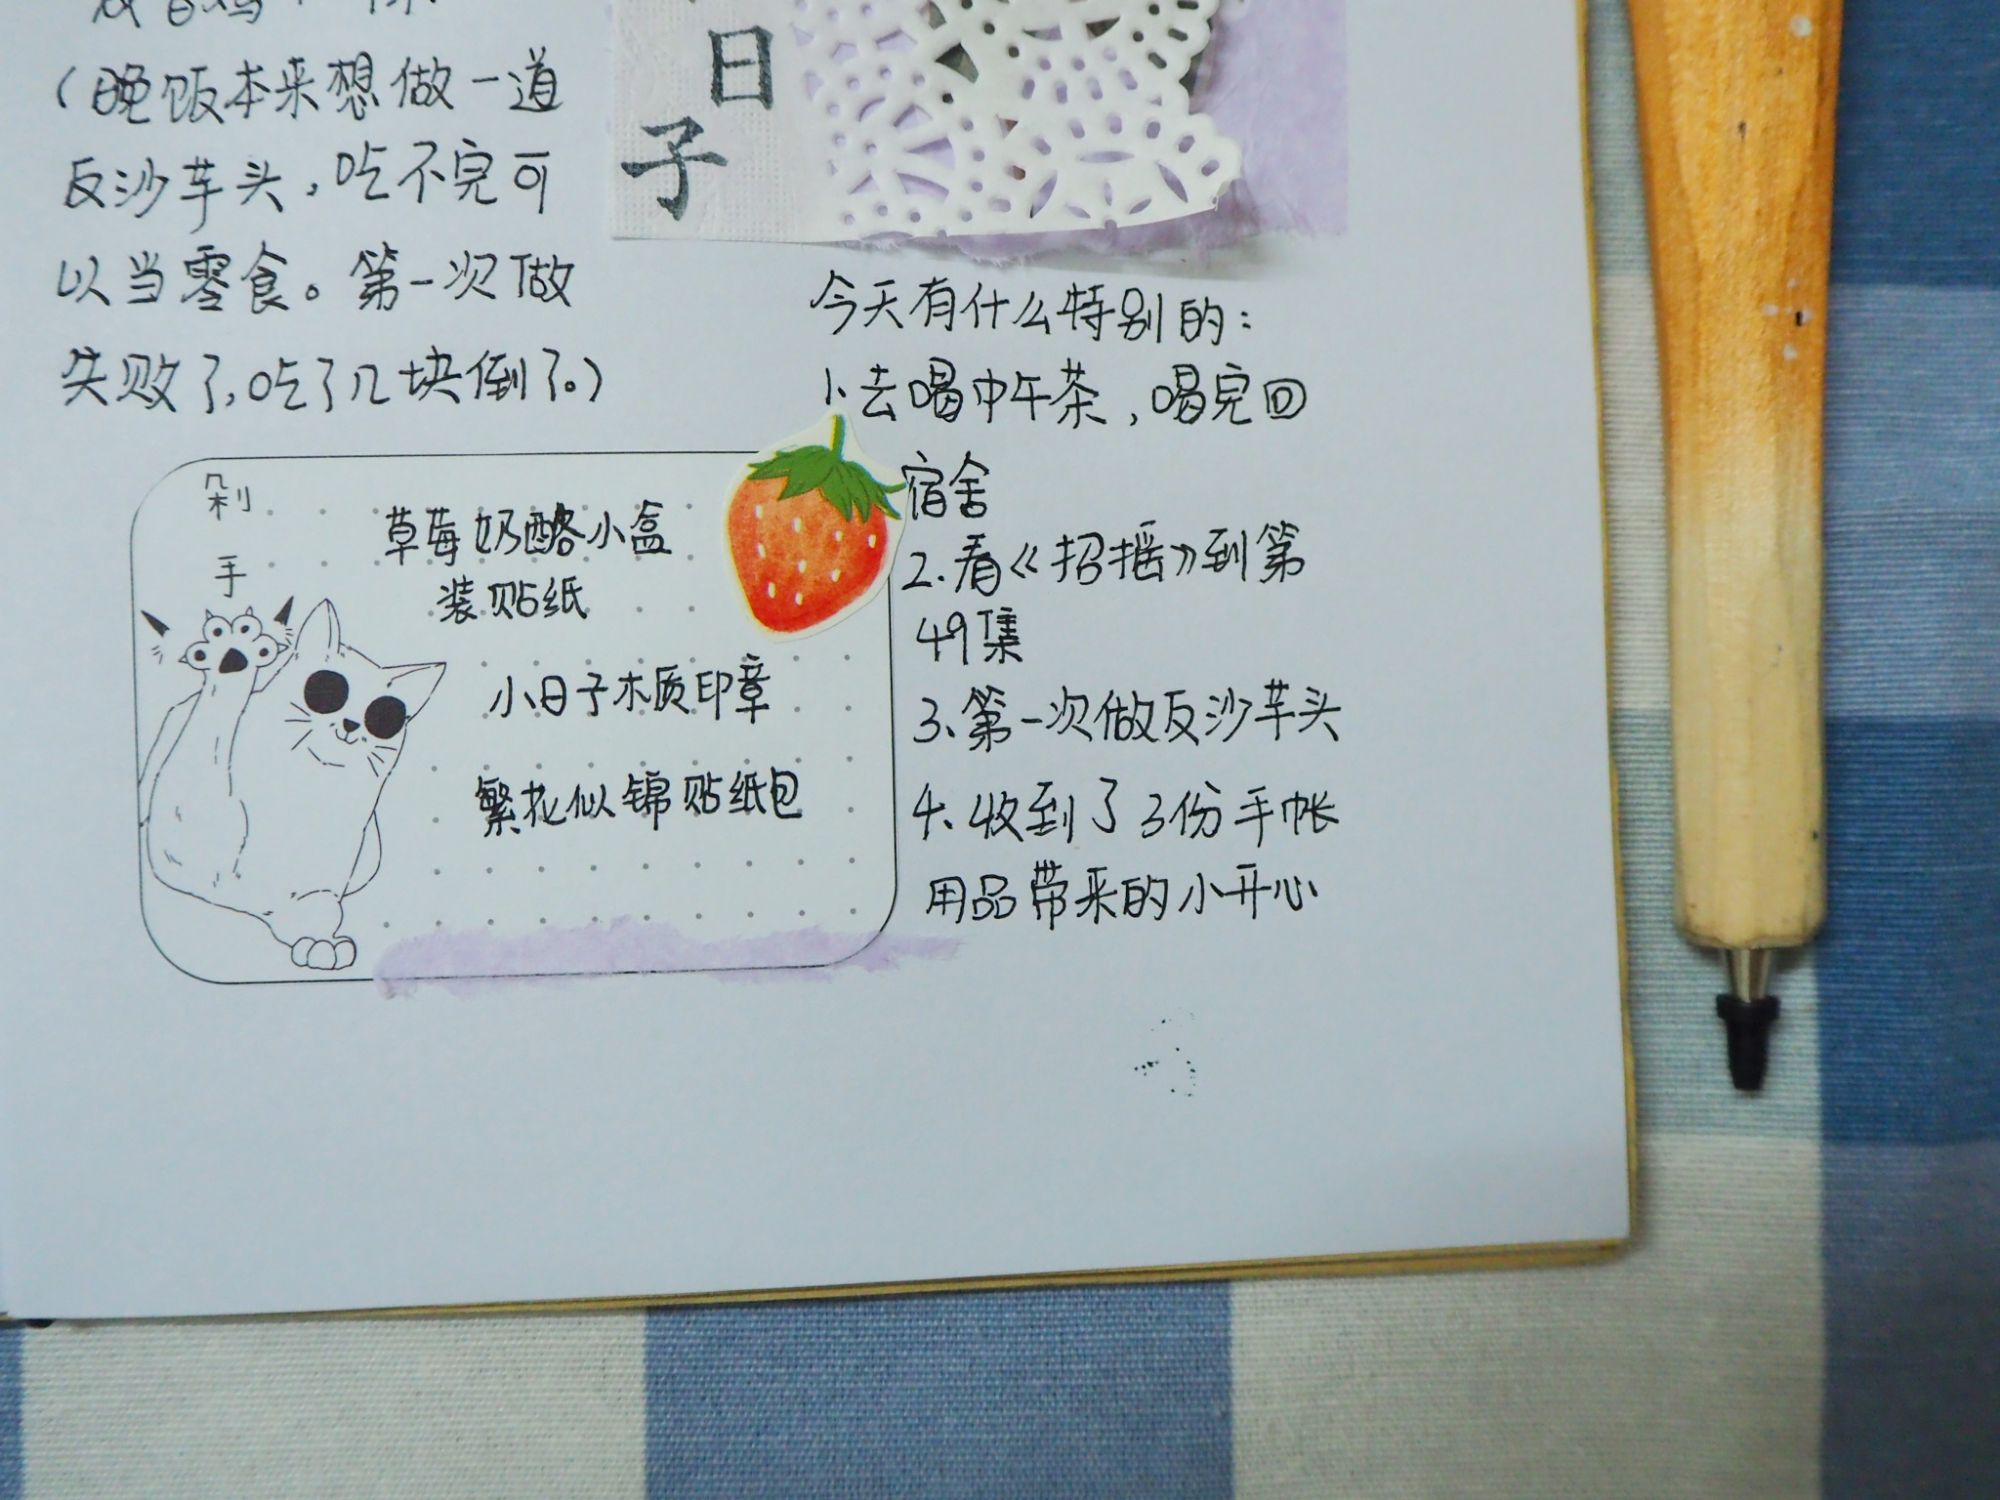 （晚饭本来想做一道
反沙芋头，吃不完可
以当零食。第一次做
失败了，吃了几块倒了。）
日
子
今天有什么特别的：
1.去喝中午茶，喝完回
宿舍
2.看《招摇》到第
49集
3.第一次做反沙芋头
4.收到了3份手帐
用品带来的小开心
剁
手
草莓奶酪小盒
装贴纸
小日子木质印章
繁花似锦贴纸包